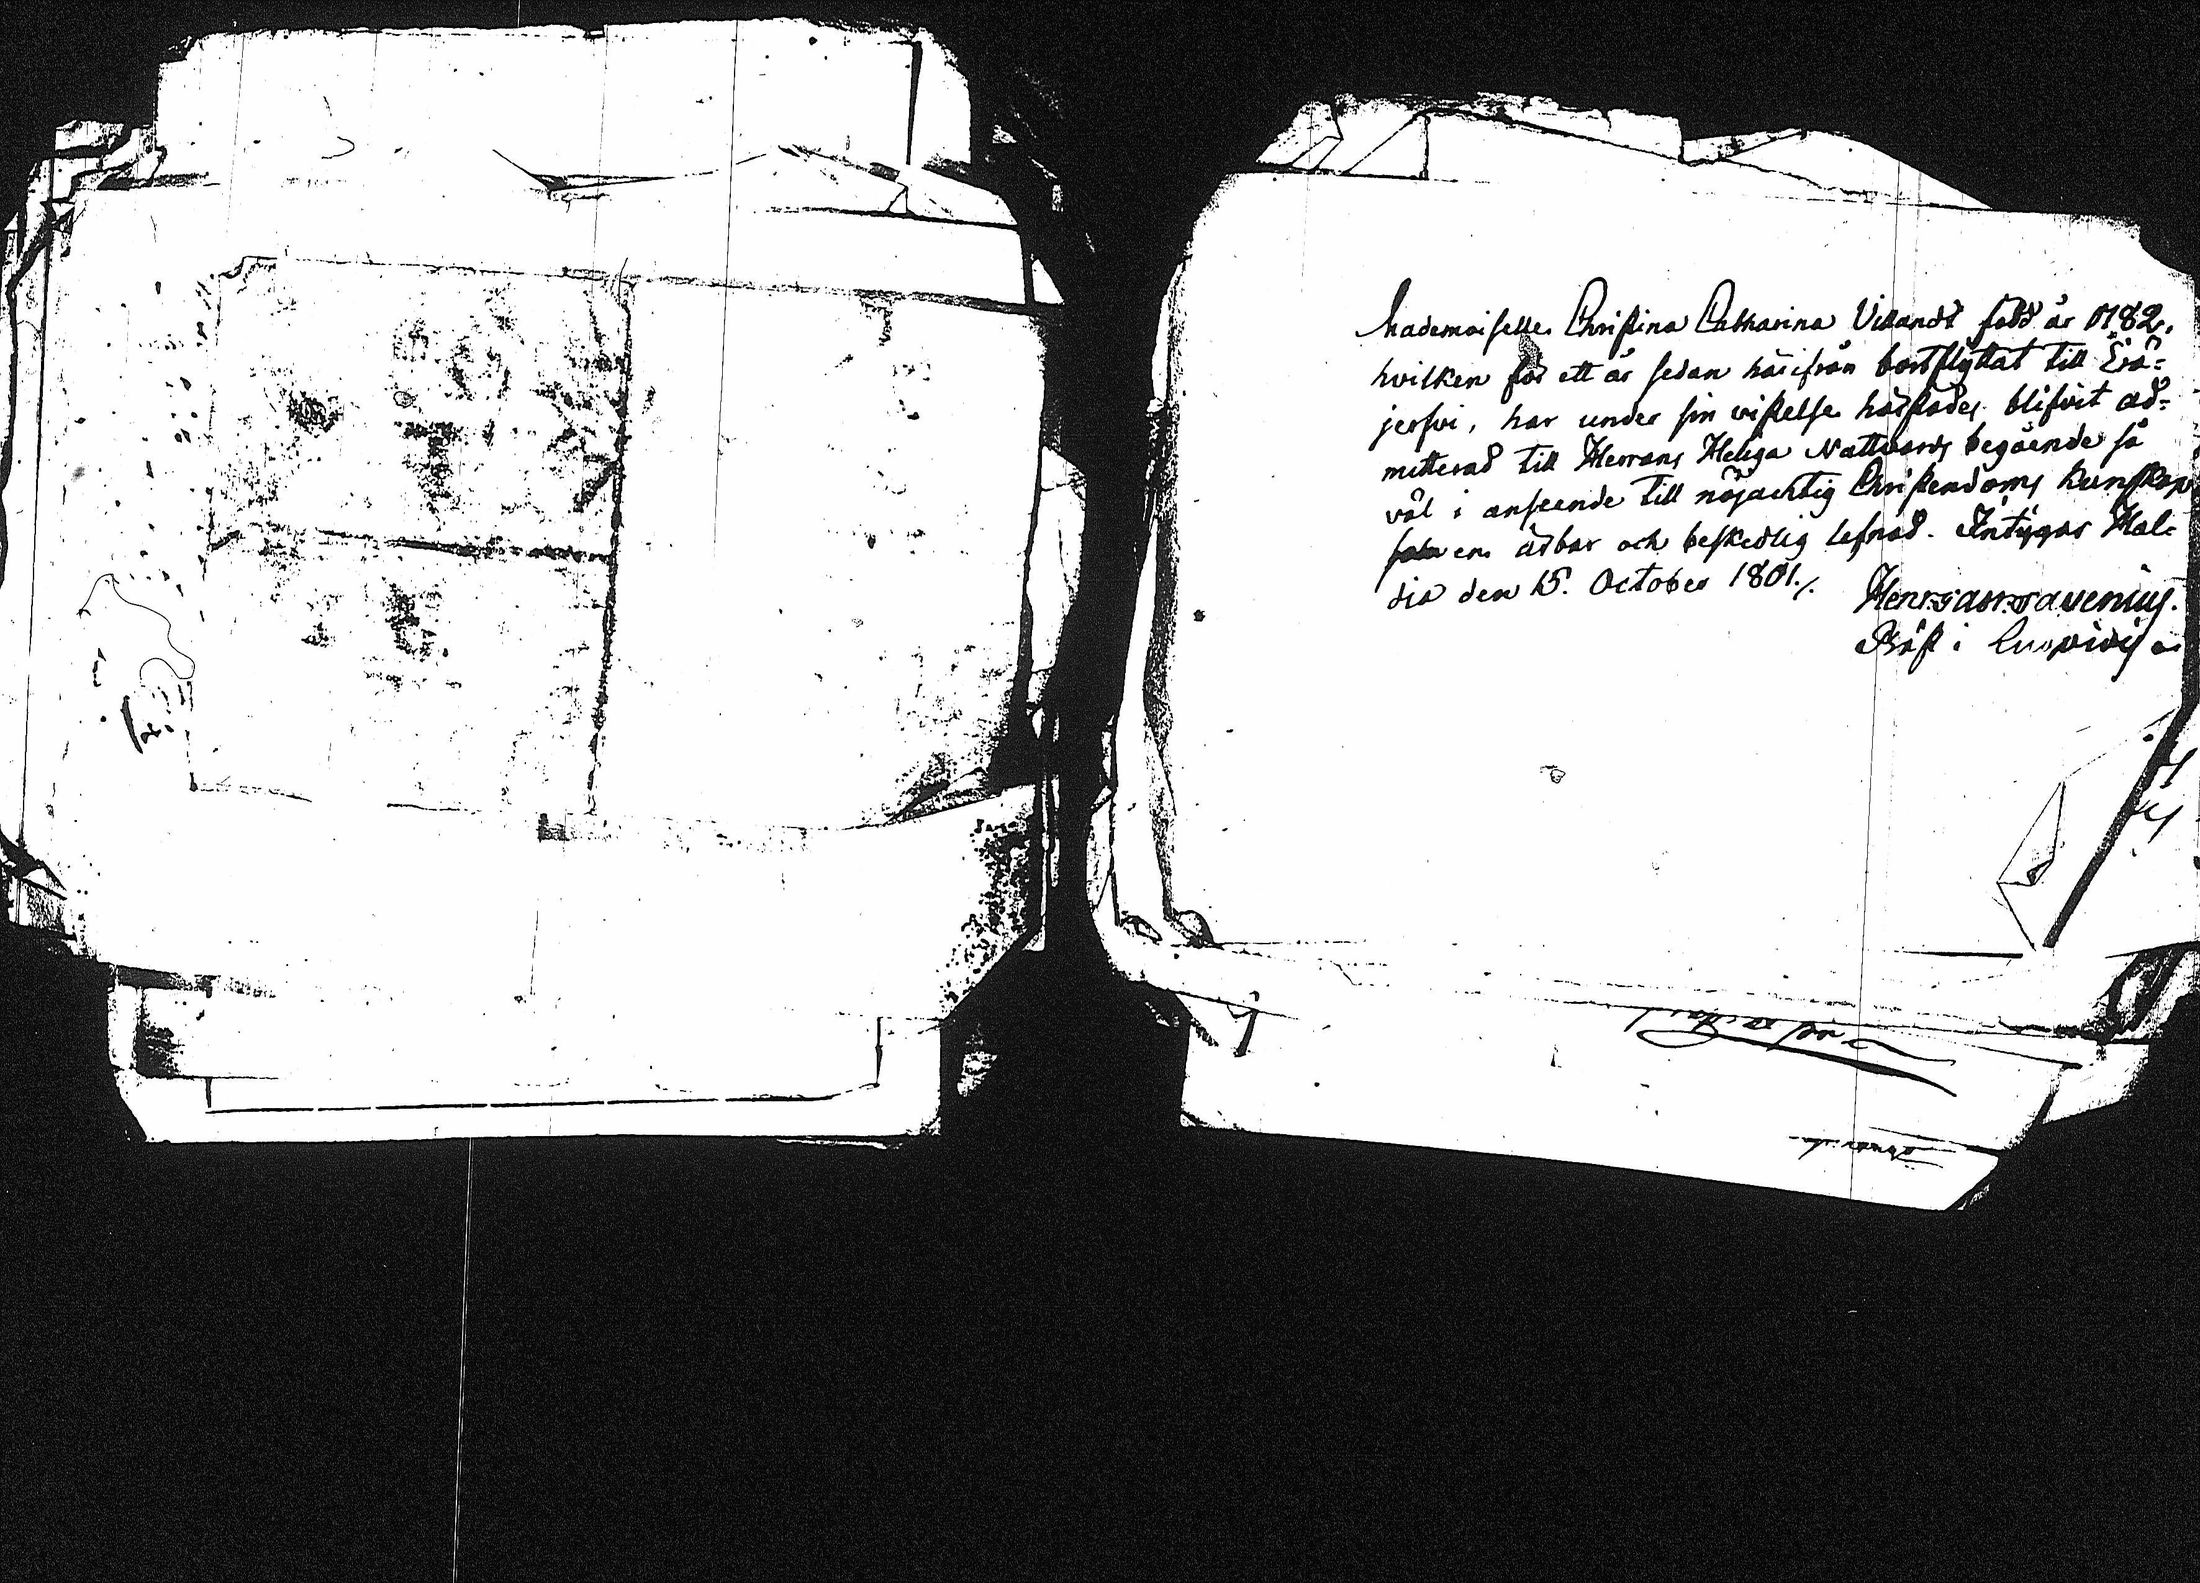 Mademoiselle Christina Catharina Vilandt född år 1782,
hvilken för ett år sedan härifrån bortflyttat till Erä=
jerfvi, har under sin vistelse härstädes blifvit ad=
mitterad till Herrans Heliga Nattvards begående så
väl i anseende till nöjachtig Christendoms kunskap
som en ärbar och beskedlig lefnad. Intygar Hal=
dia den 15. October 1801./.
Henr: Avenius.
Präst i